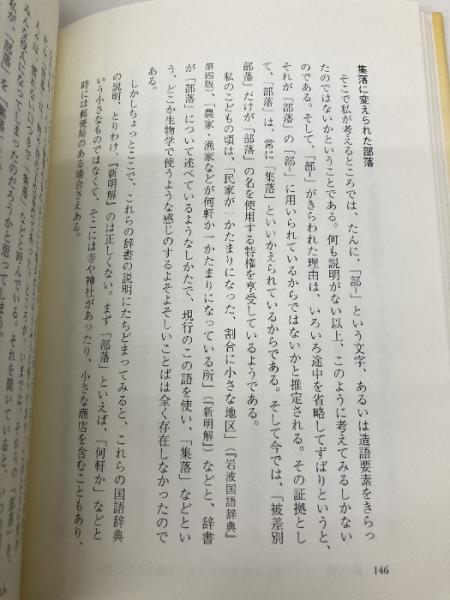 集落に変えられた部落
そこで私が考えるところでは、たんに、「部−」という文字、あるいは造語要素をきらっ
たのではないかということである。何も説明がない以上、このように考えてみるしかない
のである。そして、「部−」がきらわれた理由は、いろいろ途中を省略してずばりというと、
それが「部落」の「部−」に用いられているからではないかと推定される。その証拠とし
て、「部落」は、常に「集落」といいかえられているからである。そして今では、「被差別
部落」だけが「部落」の名を使用する特権を享受しているようである。
私のこどもの頃は、「民家が一かたまりになった、割合に小さな地区」（『岩波国語辞典』
第四版）、「農家・漁家などが何軒か一かたまりになっている所」（『新明解』）などと、辞書
が「部落」について述べているようなしかたで、現行のこの語を使い、「集落」などとい
う、どこか生物学で使うような感じのするよそよそしいことばは全く存在しなかったので
ある。
しかしちょっとここで、これらの辞書の説明にたちどまってみると、これらの国語辞典
の説明、とりわけ、『新明解』のは正しくない。まず「部落」といえば、「何軒か」などと
いう小さなものではなくて、そこには寺や神社があったり、小さな商店を含むこともあり、
時には郵便局のある場合さえある。
146